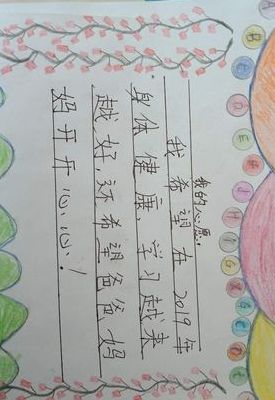 我的心愿:
我希望在2019年
身体健康,学习越来
越好,还希望爸爸、妈
妈开开心心!